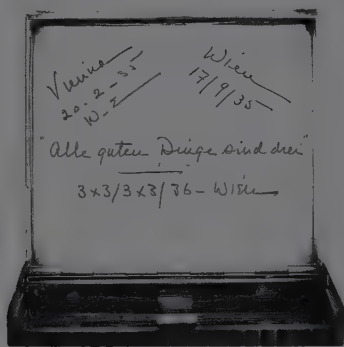 Vienna
20.2-35
W-E
Wien
17/9/35
"Alle guten Dinge sind drei"
3x3/3x3/36 - Wien